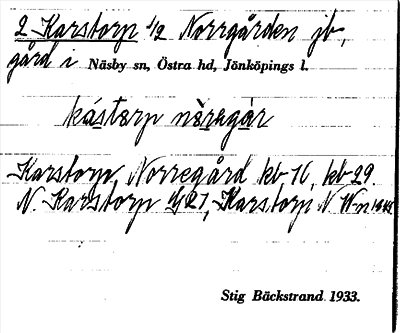 2 Karstorp 1/2 Norrgården jb,
gård i Näsby sn, Östra hd, Jönköpings l.
kástorp nòregàr
Karstorp, Norregård kb 16, kb 29.
N. Karstorp 21, Karstorp N
Stig Bäckstrand 1933.